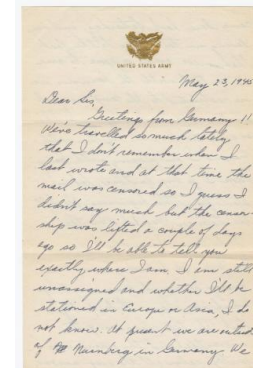 UNITED STATES ARMY
May 23, 1945
Dear Sis,
Greetings from Germany!!
We've travelled so much lately
that I don't remember when I
last wrote and at that time the
mail was censored so I guess I
didn't say much but the censor
ship was lifted a couple of days
ago so I'll be able to tell you
exactly where I am. I am still
unassigned and whether I'll be
stationed in Europe or Asia, I do
not know. At present we are outside
of Nurnberg in Germany. We